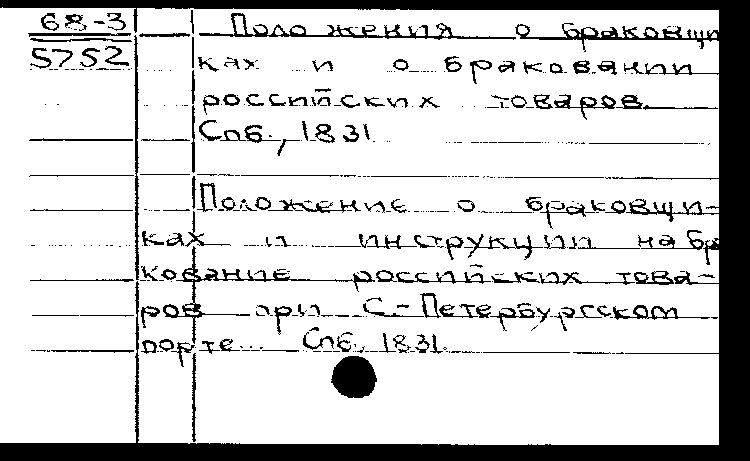 68-3
5752
Положения о браковщи
ках и о браковании
российских товаров.
Спб., 1831
Положение о браковщи-
ках и инструкции на бра
кование российских това-
ров при С.-Петербургском
порте... Спб., 1831.